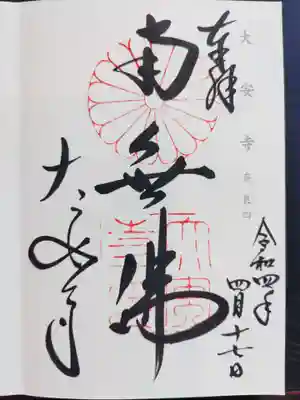 大安寺 奈良
奉拝
令和四年
四月十七日
南無佛
大安寺